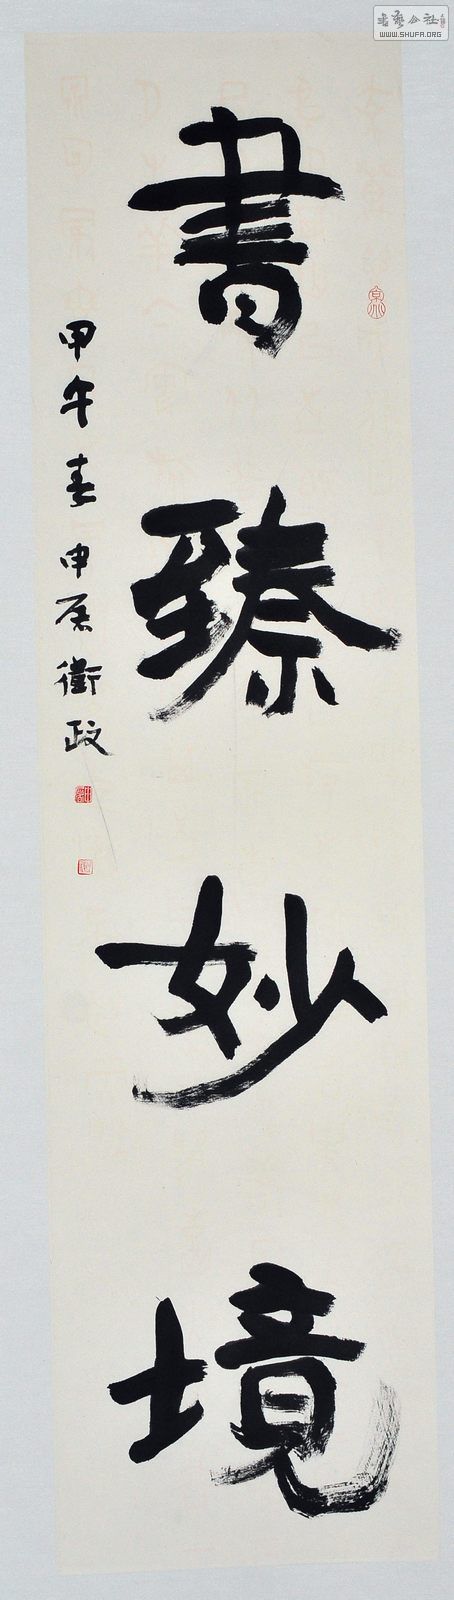 書臻妙境
甲午春申居衛政
書藝公社
WWW.SHUFA.ORG